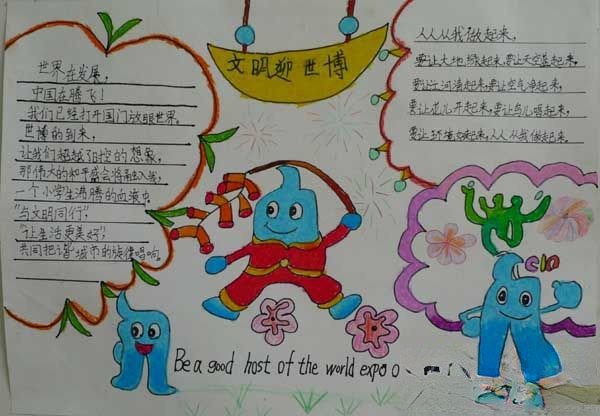 世界在发展，
中国在腾飞！
我们已经打开国门放眼世界。
世博的到来，
让我们超越时空的想象，
那伟大的和平盛会将融入我，
一个小学生沸腾的血液中。
"与文明同行"
"让生活更美好"
共同把谐城市的旋律唱响。
文明迎世博
人人从我做起来，
要让大地绿起来，要让天空蓝起来，
要让江河清起来，要让空气净起来，
要让花儿开起来，要让鸟儿唱起来，
要让环境起来，人人从我做起来。
Be a good host of the world expo